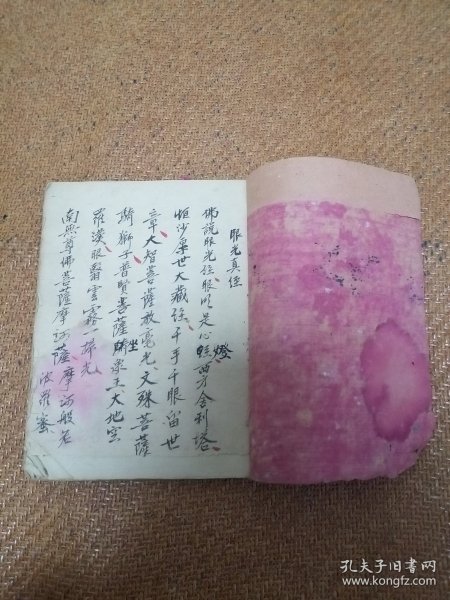 眼光真经
佛說眼光经眼以是心燈西方舍利塔
恒沙衆世大藏经千手千眼留世
章大智菩薩放毫光文殊菩薩
騎獅子普賢菩薩坐象王大地空
羅漢眼翳雲霧一掃光
南無尊佛菩薩摩訶薩摩訶般若
波羅蜜
孔夫子旧书网
www.kongfz.com